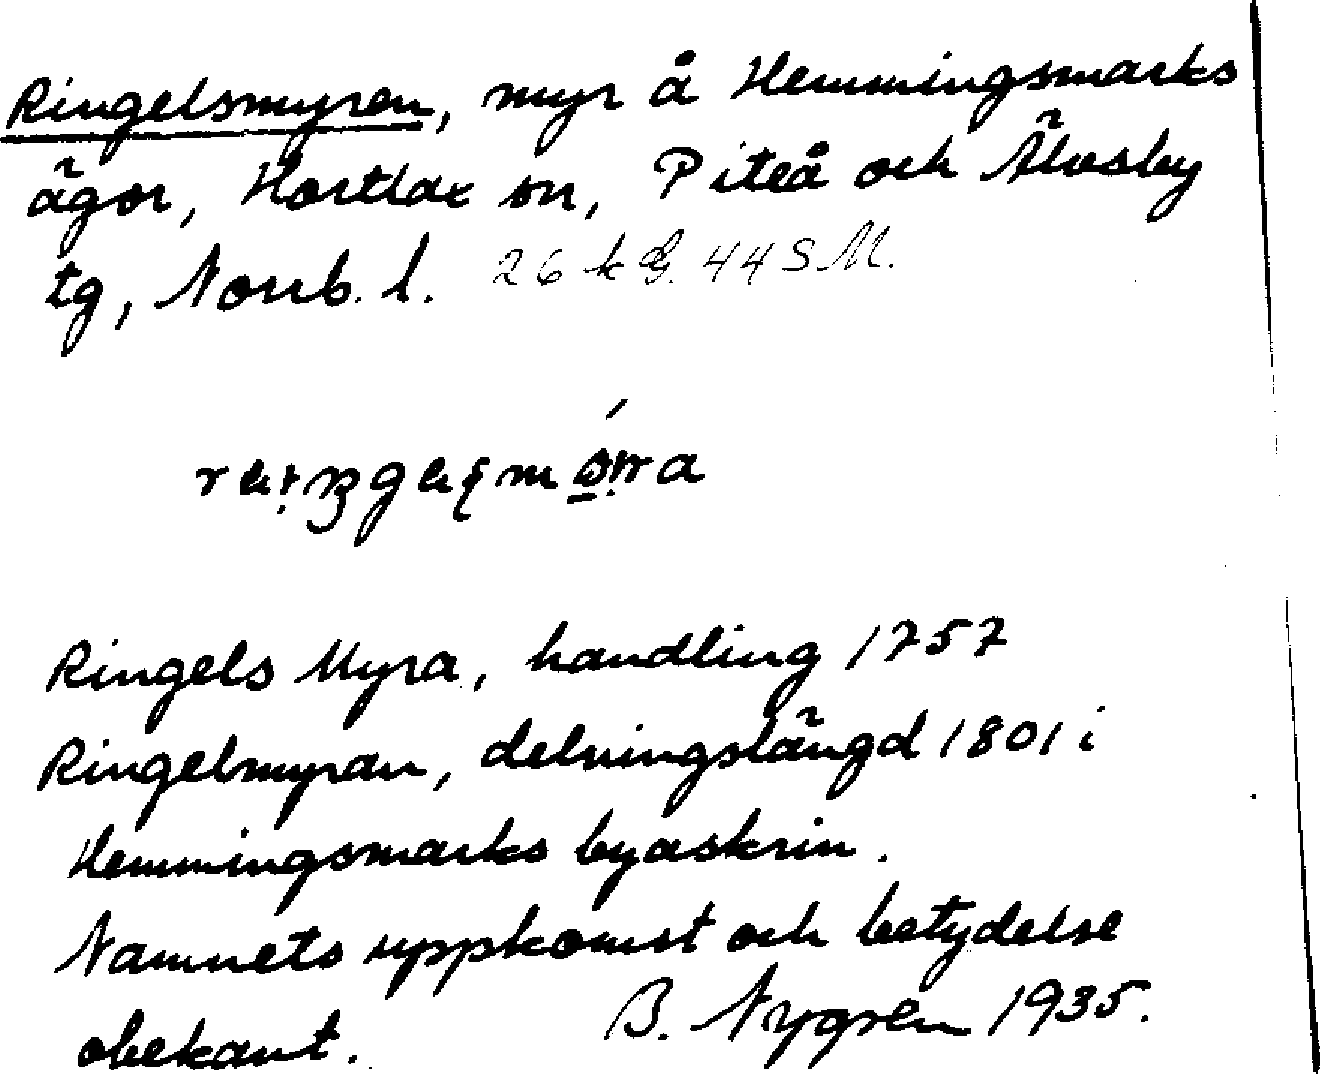 Ringelsmyren, myr å Hemmingsmarks
ägor, Hortlax sn, Piteå och Älvsby
tg, Norrb. l. 26 k G. 44 SM.
Ringels Myra, handling 1757
Ringelsmyran, delningslängd 1801 i
Hemmingsmarks byaskrin.
Namnets uppkomst och betydelse
obekant. B. Nygren 1935.